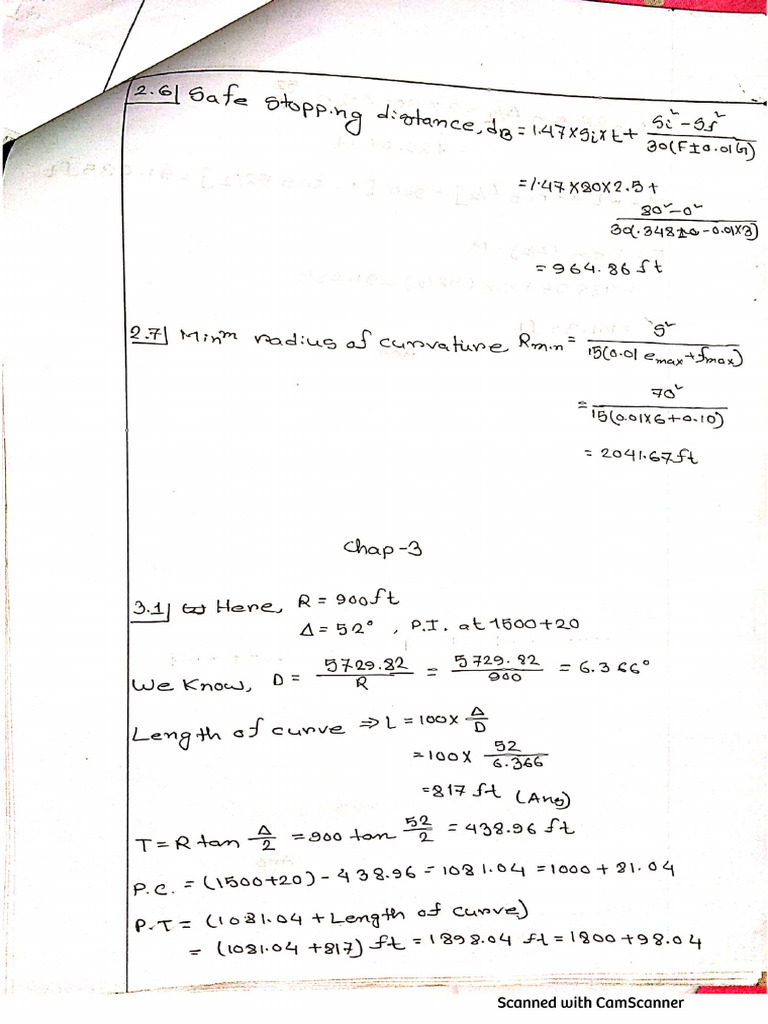 2.6| Safe stopping distance, dB = 1.47×Si×t + (Si² - Sf²) / 30(F±0.01G)
= 1.47×80×2.5 +
(80² - 0²) / 30(.348 - 0.01×3)
= 964.86 ft
2.7| Minᵐ radius of curvature Rmin = S² / 15(0.01 emax + fmax)
= 70² / 15(0.01×6+0.10)
= 2041.67 ft
Chap-3
3.1| Here, R = 900ft
Δ = 52° , P.I. at 1500+20
We Know, D = 5729.82 / R = 5729.82 / 900 = 6.366°
Length of curve ⇒ L = 100× Δ/D
= 100× 52/6.366
= 817 ft (Ans)
T = R tan Δ/2 = 900 tan 52/2 = 438.96 ft
P.C. = (1500+20) - 438.96 = 1081.04 = 1000 + 81.04
P.T = (1081.04 + Length of curve)
= (1081.04 + 817) ft = 1898.04 ft = 1800+98.04
Scanned with CamScanner